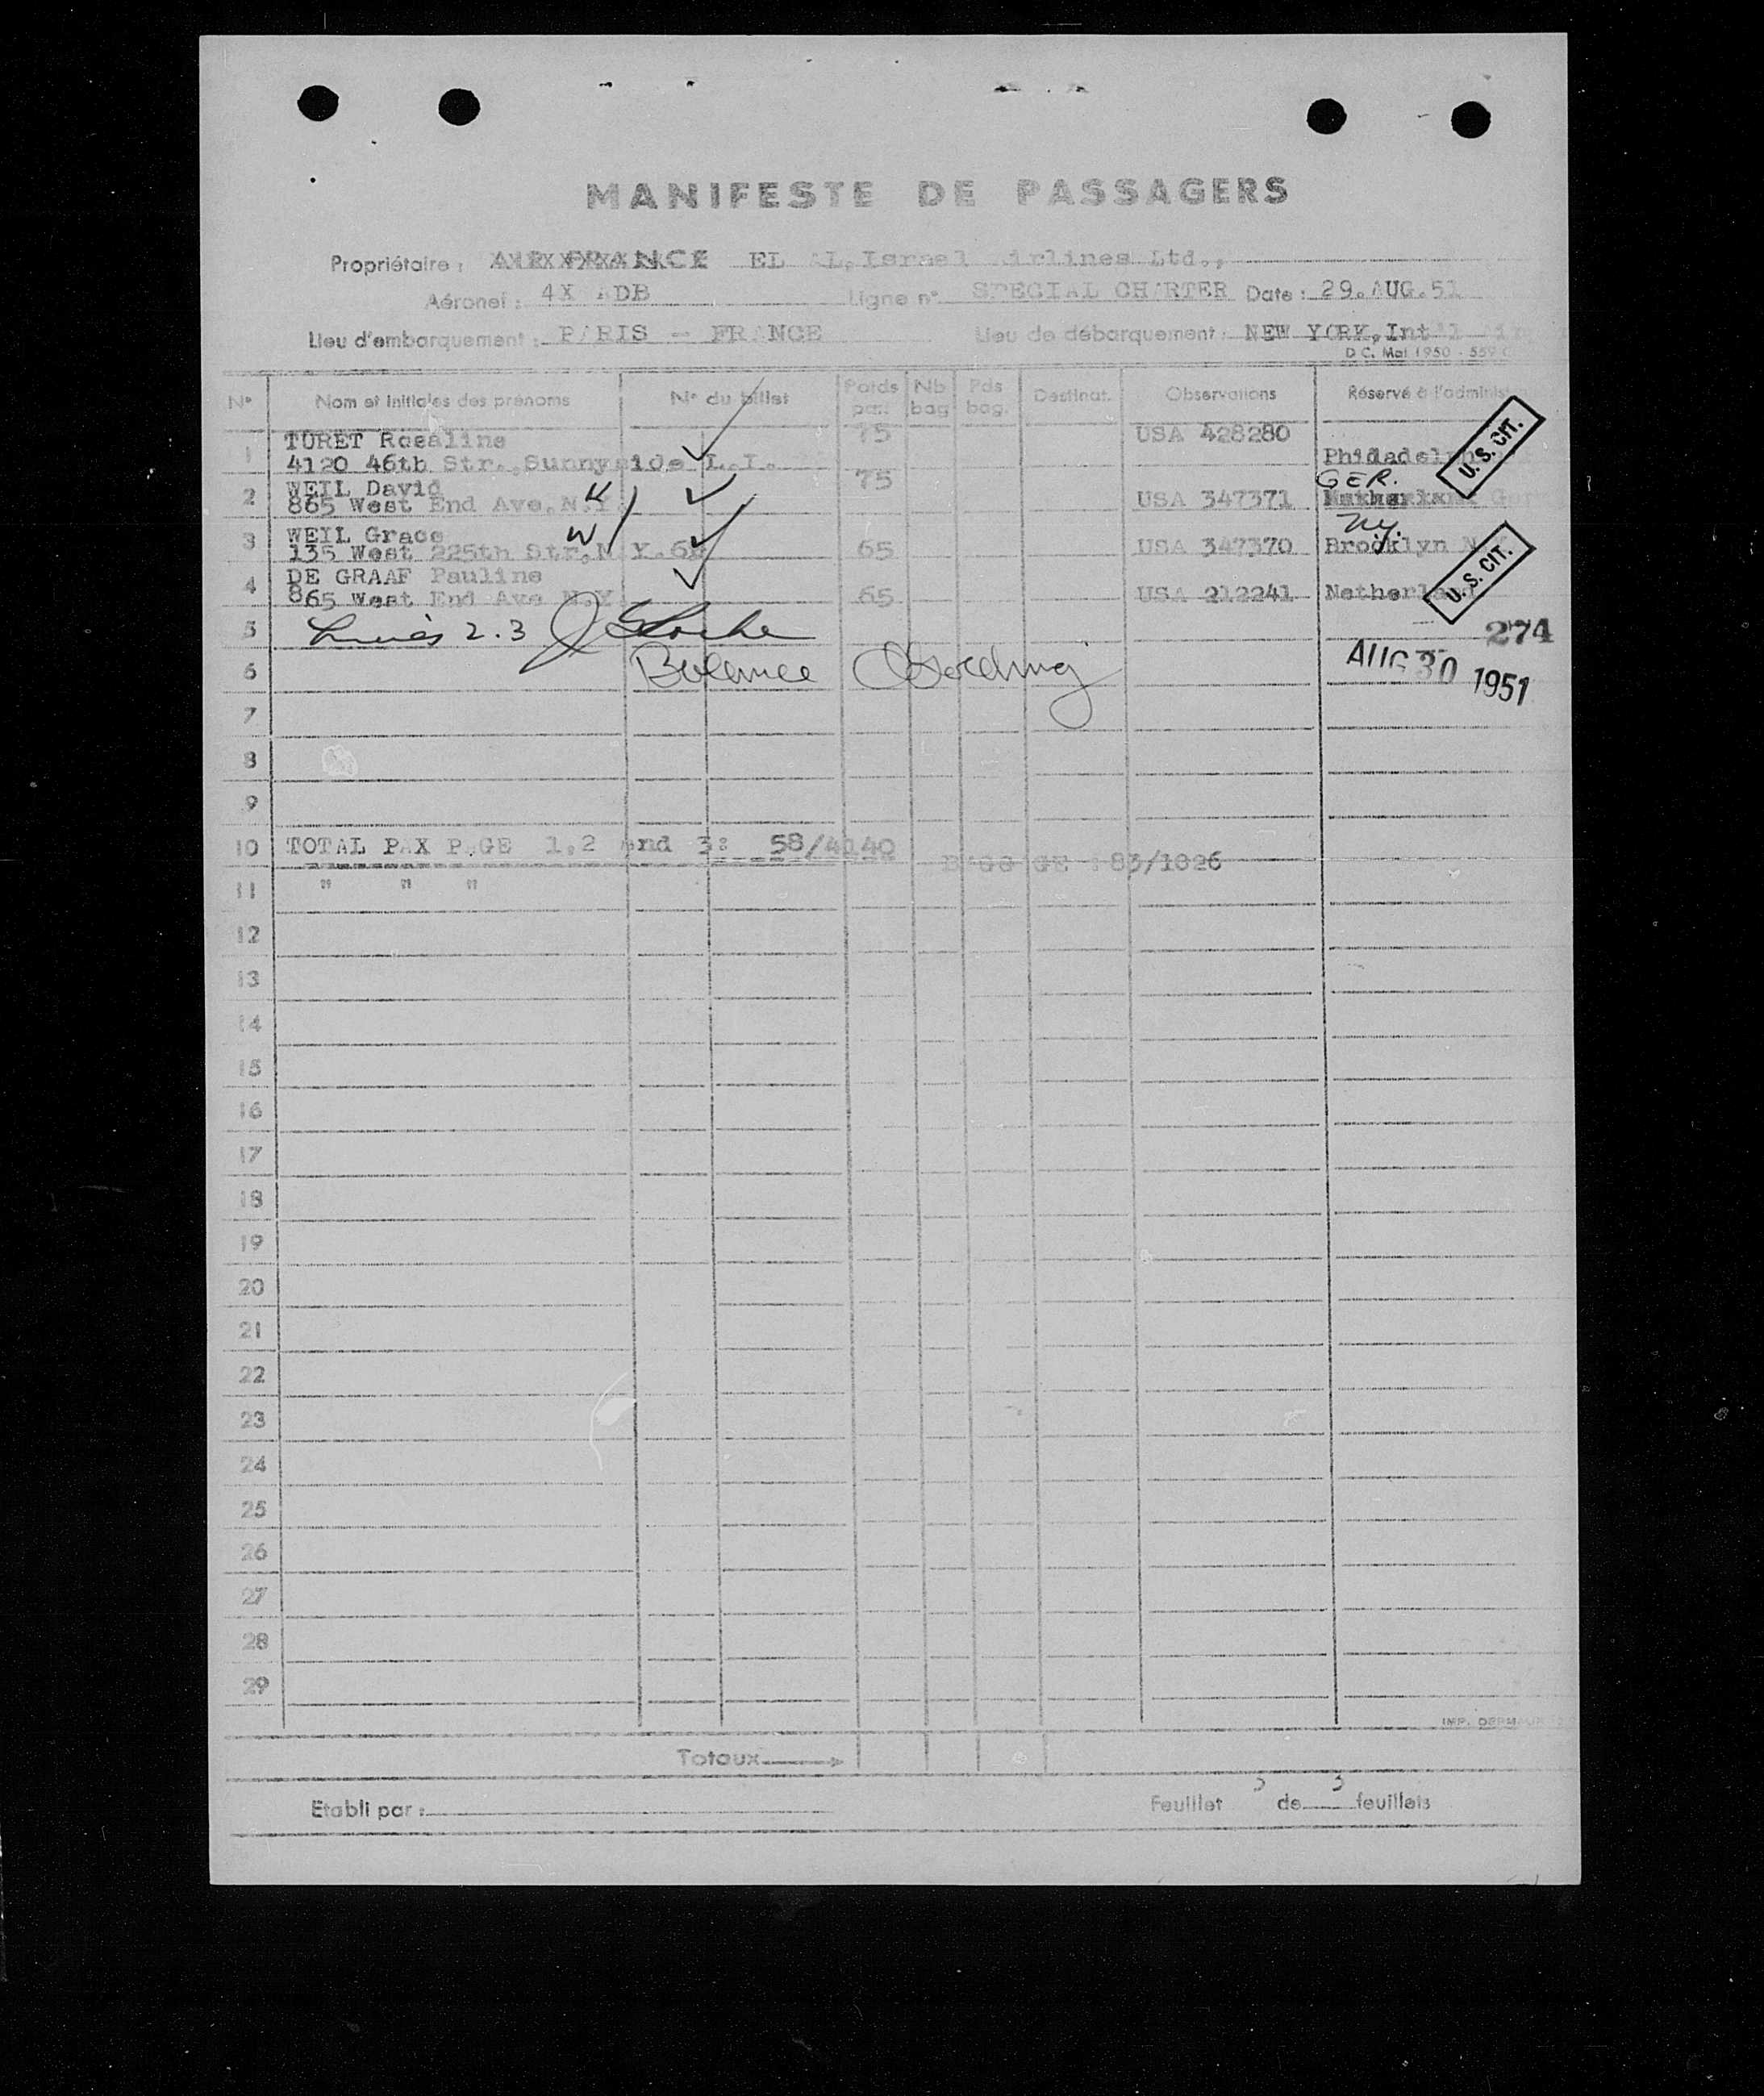 MANIFESTE DE PASSAGERS
Propriétaire : AIR FRANCE EL AL, Israel Airlines Ltd.,
Aéronef : 4X ADB Ligne n° SPECIAL CHARTER Date : 29.AUG.51
Lieu d'embarquement : PARIS - FRANCE Lieu de débarquement : NEW YORK, Int'l
D C. Mai 1950 - 559
N° Nom et initiales des prénoms N° du billet Poids pas. Nb bag Pds bag. Destinat. Observations Réservé à l'adminis
1 TURET Rosaline 75 USA 428280
4120 46th Str., Sunnyside L.I. Phidadelph
U. S. CIT.
2 WEIL David 75 GER.
865 West End Ave. N.Y. USA 347371 Netherland Ger
3 WEIL Grace W N.Y.
135 West 225th Str, N.Y. 65 USA 347370 Brooklyn N
U. S. CIT.
4 DE GRAAF Pauline
865 West End Ave N.Y. 65 USA 212241 Netherland
5 2.3 274
6 AUG 30 1951
7
8
9
10 TOTAL PAX PAGE 1,2 And 3: 58/4140 BAGGAGE : 83/1026
11 " " "
12
13
14
15
16
17
18
19
20
21
22
23
24
25
26
27
28
29
IMP. DERM
Totaux
Etabli par : Feuillet 3 de 3 feuillets